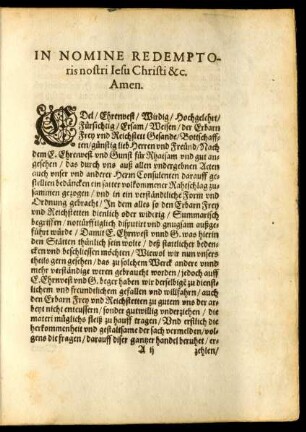 IN NOMINE REDEMPTO-
ris nostri Iesu Christi &c.
Amen.
EDel / Ehrnvest / Wirdig / Hochgelehrt /
Fürsichtig / Ersam / Weisen / der Erbarn
Frey vnd Reichstett Gesande / Bottschaff-
ten / günstig lieb Herren vnd Freünd / Nach
dem E. Ehrnvest vnd Gunst für Rhatsam vnd gut an-
gesehen / das durch vns auß allen vndergebnen Acten
auch vnser vnd anderer Herrn Consulenten darauff ge-
stellten bedäncken ein satter volkommener Rahtschlag zu-
sammen gezogen / vnd in ein verständtliche Form vnd
Ordnung gebracht / In dem alles so den Erbarn Frey
vnd Reichstetten dienlich oder widerig / Summarisch
begriffen / notturfftiglich disputirt vnd gnugsam außge-
führt würde / Damit E. Ehrnvest vnnd G. was hierin
den Stätten thünlich sein wolte / deß stattlicher beden-
cken vnd beschliessen möchten / Wiewol wir nun vnsers
theils gern gesehen / das zu solchem Werck andere vnnd
mehr verständige weren gebraucht worden / jedoch auff
E. Ehrnvest vnd G. beger haben wir derselbige zu dienst-
lichem vnd freundtlichem gefallen vnd willfahrn / auch
den Erbarn Frey vnd Reichstetten zu gutem vns der ar-
beyt nicht enteussern / sonder gutwillig vnderziehen / die
materi müglichs fleiß zu hauff tragen / Vnd erstlich die
herkommenheit vnd gestaltsame der sach vermelden / vol-
gens die fragen / darauff diser gantzer handel beruhet / er-
A ij zehlen /